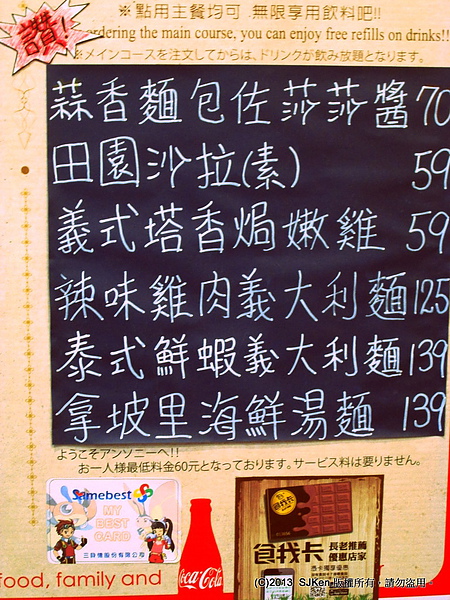 讚!
※點用主餐均可 無限享用飲料吧!!
ordering the main course, you can enjoy free refills on drinks!!
※メインコースを注文してからは、ドリンクが飲み放題となります。
蒜香麵包佐莎莎醬 70
田園沙拉(素) 59
義式塔香焗嫩雞 59
辣味雞肉義大利麵 125
泰式鮮蝦義大利麵 139
拿坡里海鮮湯麵 139
ようこそアンソニーへ!!
お一人様最低料金60元となっております。サービス料は要りません。
Samebest
MY
BEST
CARD
三時情股份有限公司
Coca-Cola
食我卡
食我卡
長老推薦
優惠店家
憑卡獨享優惠
food, family and
(C)2013 SJKen 版權所有，請勿盜用